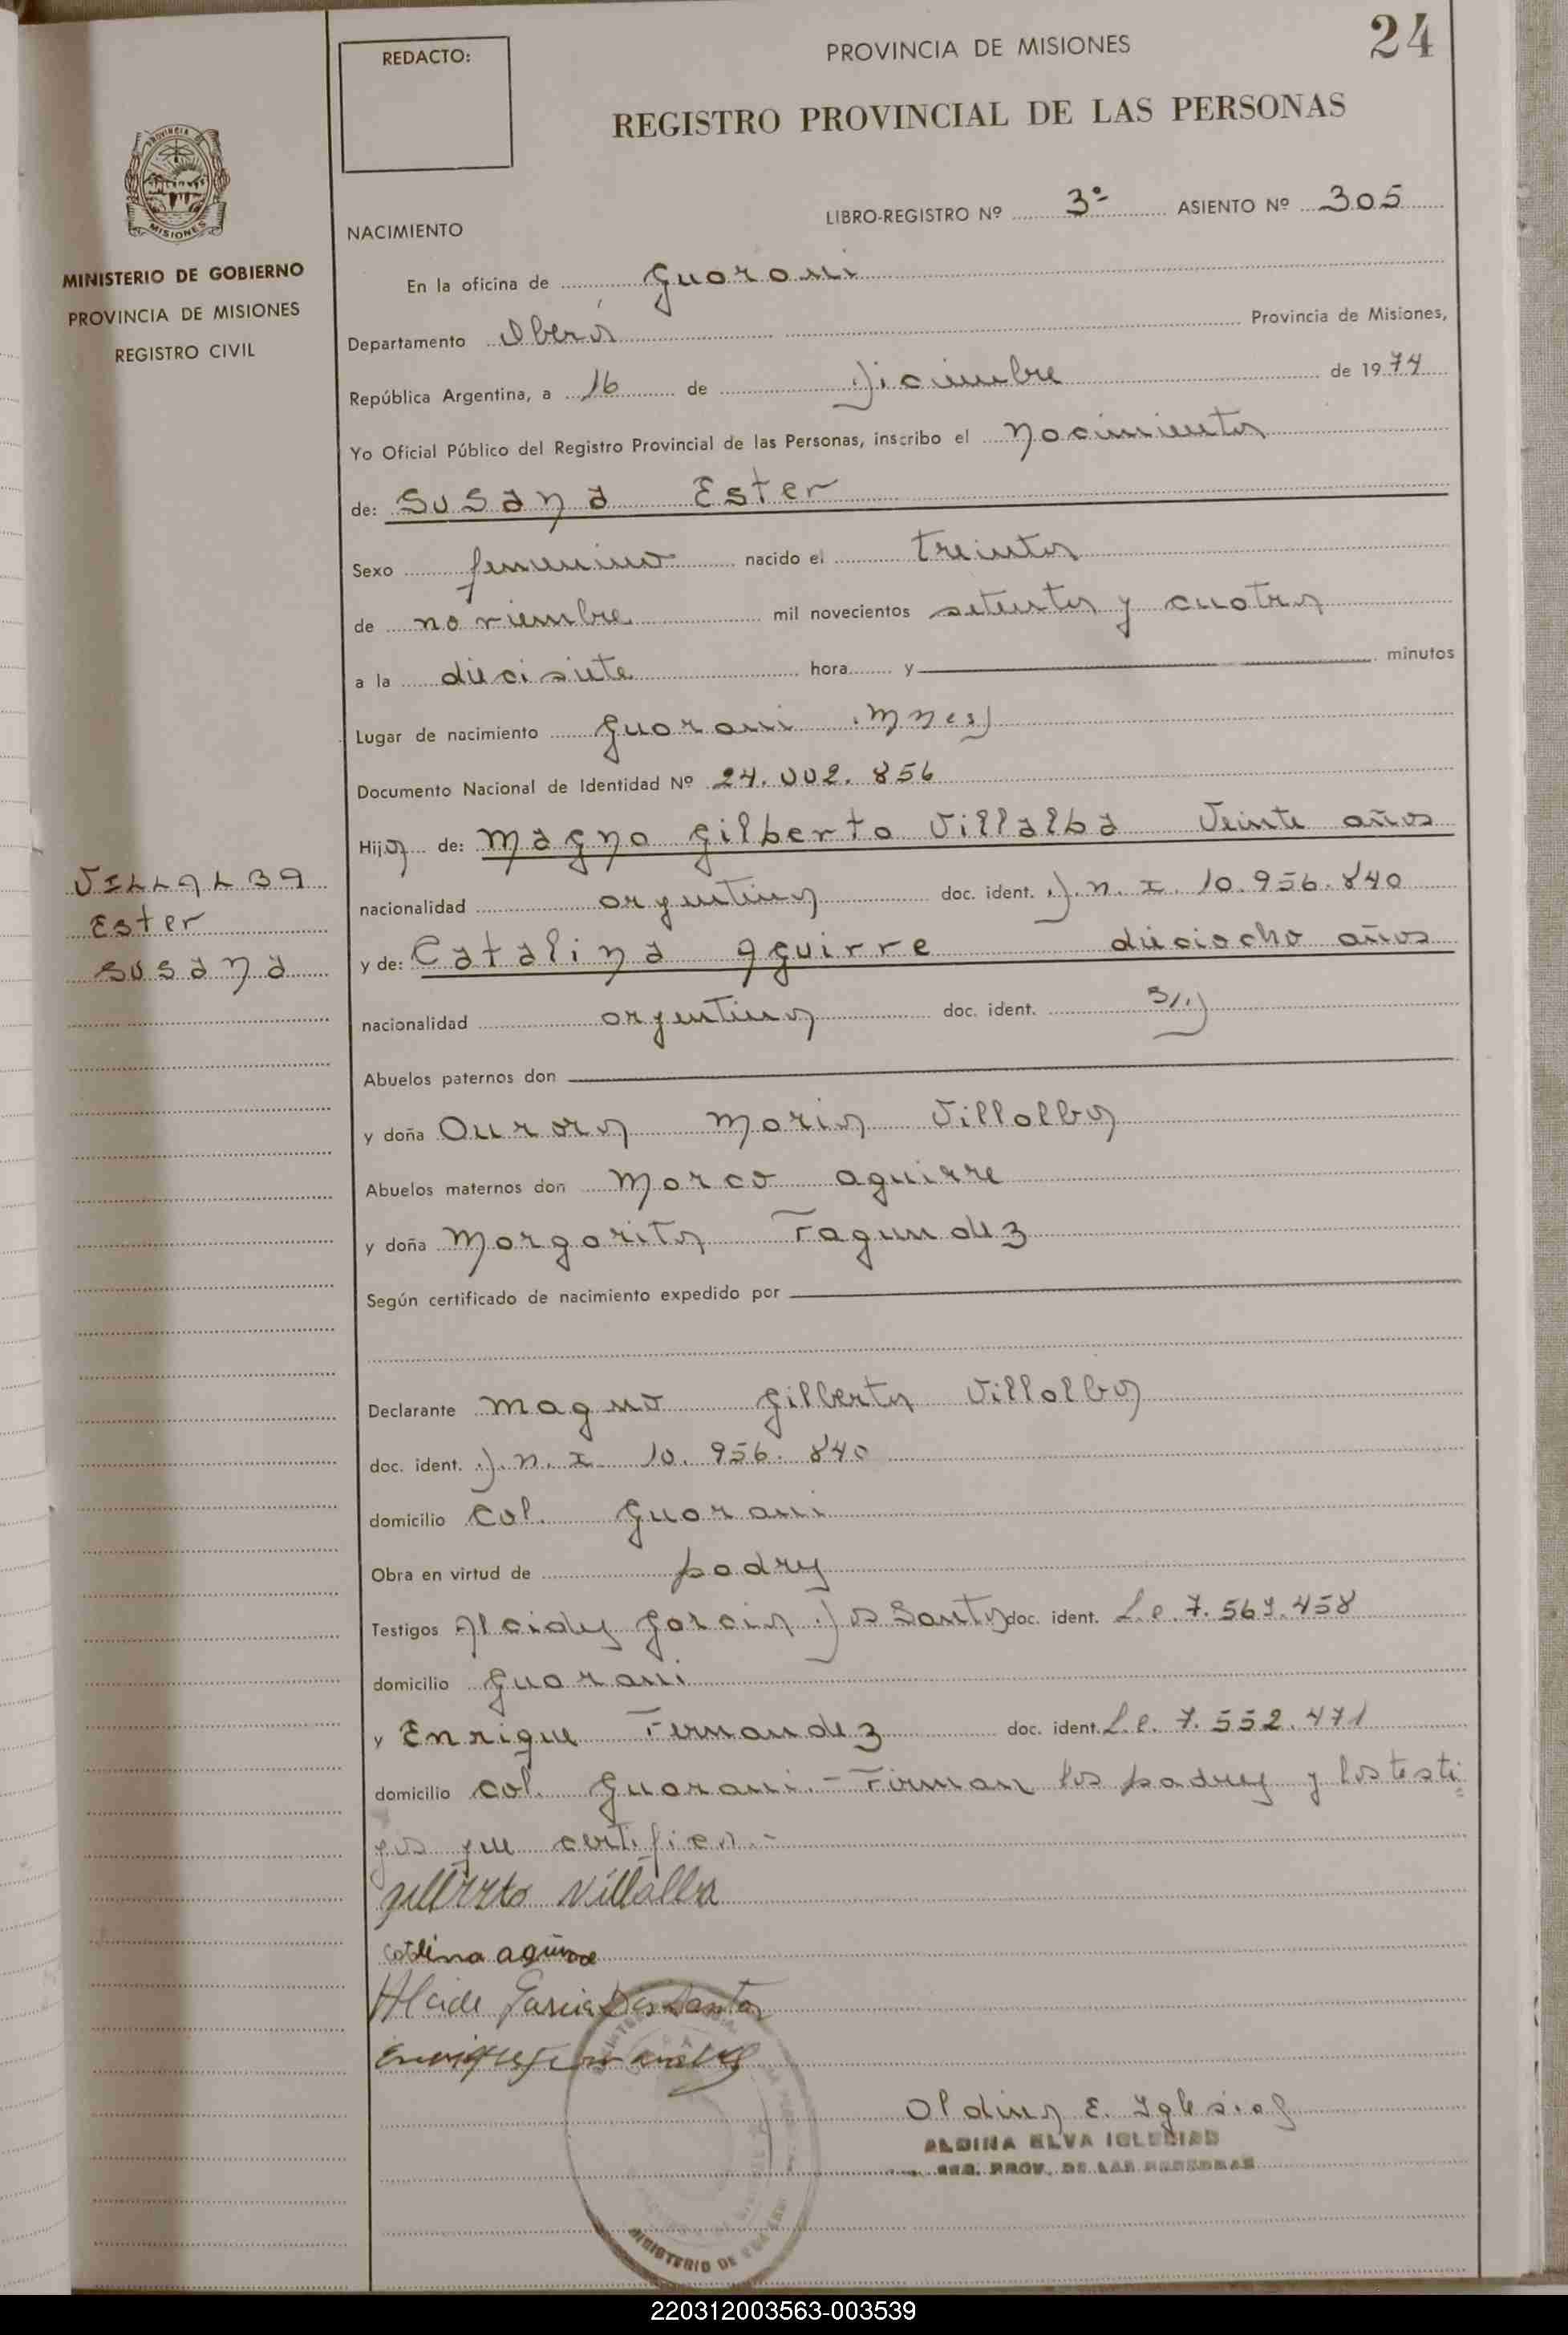 24
REDACTO:
PROVINCIA DE MISIONES
REGISTRO PROVINCIAL DE LAS PERSONAS
PROVINCIA DE
MISIONES
MINISTERIO DE GOBIERNO
PROVINCIA DE MISIONES
REGISTRO CIVIL
LIBRO-REGISTRO Nº 3º ASIENTO Nº 305
NACIMIENTO
En la oficina de Guarani
Departamento Oberá Provincia de Misiones,
República Argentina, a 16 de Diciembre de 1974
Yo Oficial Público del Registro Provincial de las Personas, inscribo el Nacimiento
de: Susana Ester
Sexo femenino nacido el treinta
de noviembre mil novecientos setenta y cuatro
a la diecisiete hora y minutos
Lugar de nacimiento Guarani Mnes
Documento Nacional de Identidad Nº 24.002.856
Hija de: Magno Gilberto Villalba Veinte años
nacionalidad argentina doc. ident. D.N.I. 10.956.840
VILLALBA
Ester
Susana
y de: Catalina Aguirre dieciocho años
nacionalidad argentina doc. ident. S/D
Abuelos paternos don
y doña Aurora Maria Villalba
Abuelos maternos don Marco Aguirre
y doña Margarita Fagundez
Según certificado de nacimiento expedido por
Declarante Magno Gilberto Villalba
doc. ident. D.N.I. 10.956.840
domicilio Col. Guarani
Obra en virtud de padre
Testigos Alcides Garcia Dos Santos doc. ident. L.e. 7.569.458
domicilio Guarani
y Enrique Fernandez doc. ident. L.e. 7.552.471
domicilio Col. Guarani.- Firman los padres y los testi=
gos que certifico.-
Gilberto Villalba
Catalina Aguirre
Alcide Garcia Dos Santos
Enrique Fernandez
Aldina E. Iglesias
ALDINA ELVA IGLESIAS
REG. PROV. DE LAS PERSONAS
MINISTERIO DE
220312003563-003539